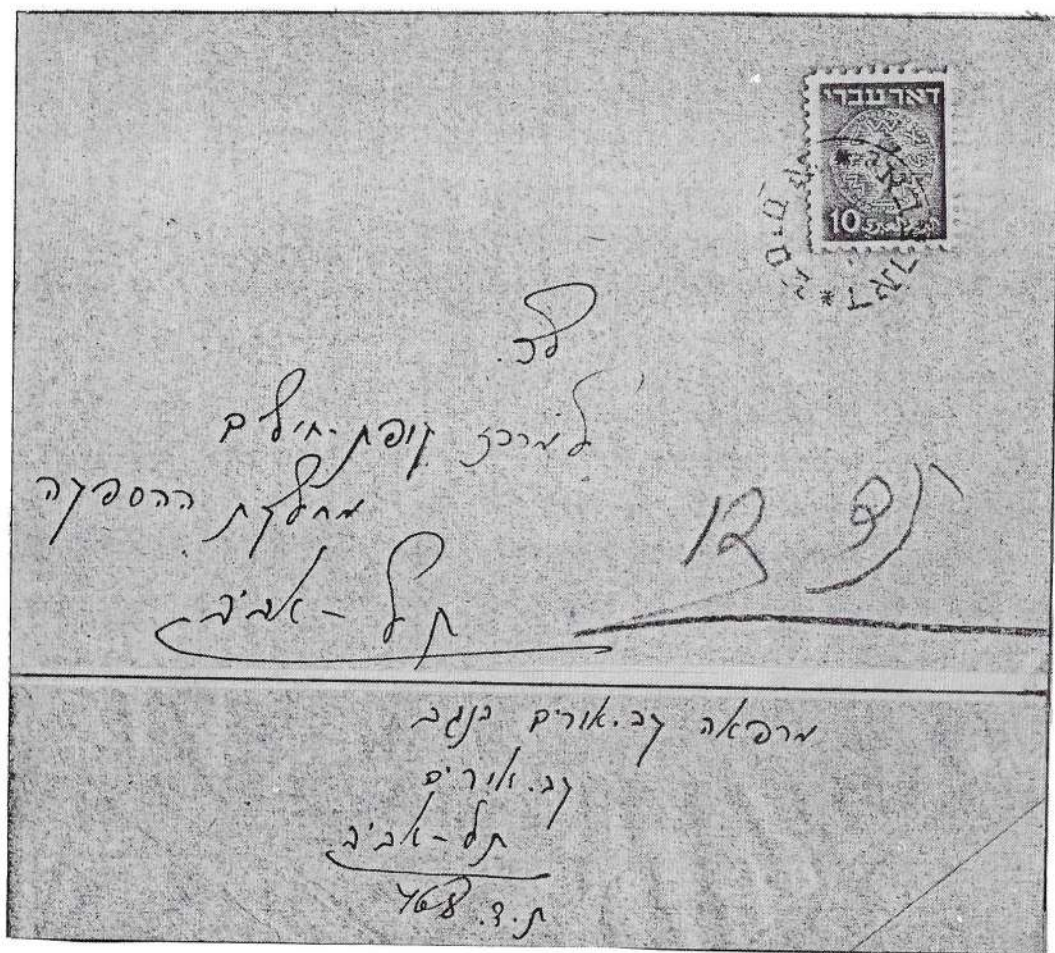 דאר עברי
10
לכ.
למרכז קופת-חולים
מחלקת ההספקה
תל-אביב
מרפאה קב. אורים בנגב
קב. אורים
תל-אביב
ת.ד.